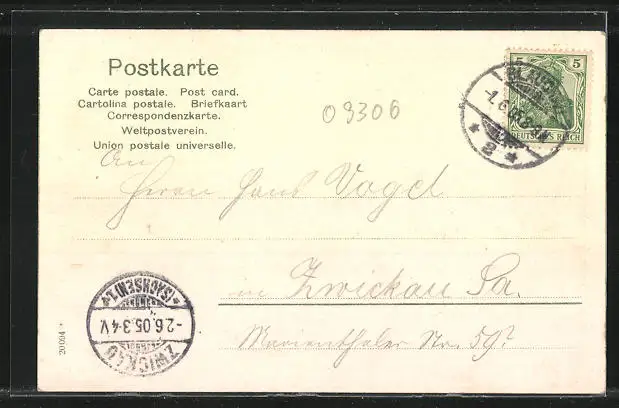 Postkarte
Carte postale. Post card.
Cartolina postale. Briefkaart
Correspondenzkarte.
Weltpostverein.
Union postale universelle.
09306
5 5
DEUTSCHES REICH
GLAUCHAU
-1.6.05.8-9N.
* 2 *
An
Herrn Hans Vogel
in Zwickau Sa.
Marienthaler Str. 59?
*(SACHSEN)1.*
-2.6.05.3-4V.
ZWICKAU
20094 *